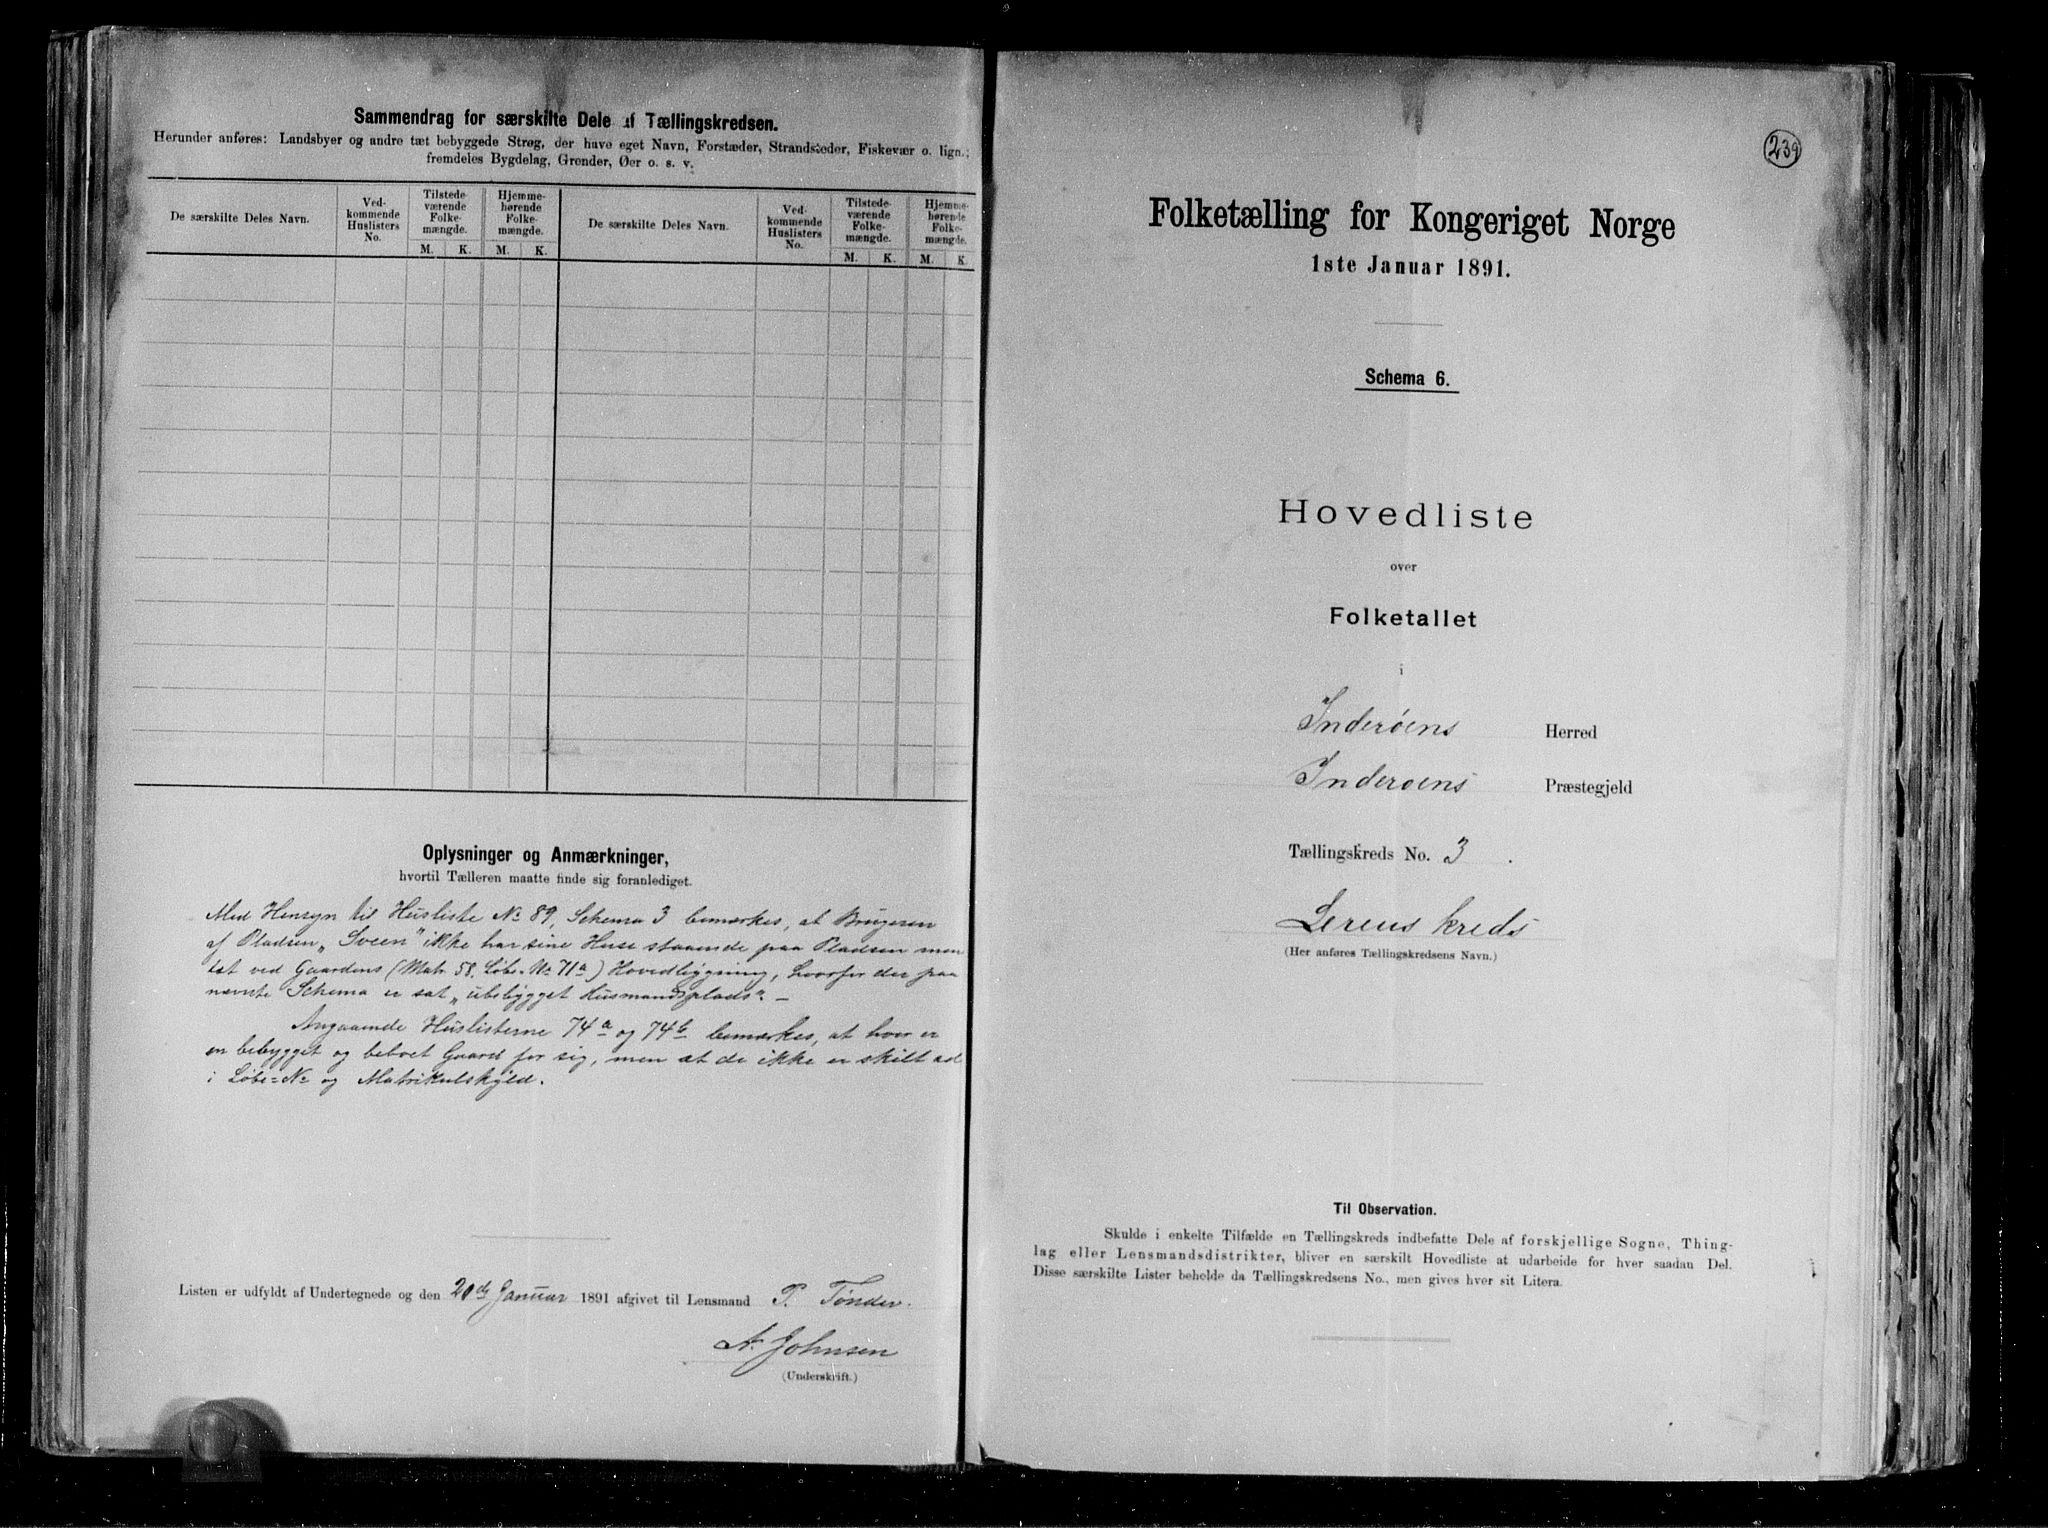 Sammendrag for særskilte Dele af Tællingskredsen.
Herunder anføres: Landsbyer og andre tæt bebyggede Strøg, der have eget Navn, Forstæder, Strandsteder, Fiskevær o. lign.;
fremdeles Bygdelag, Grender, Øer o. s. v.
De særskilte Deles Navn.
Ved-
kommende
Huslisters
No.
Tilstede-
værende
Folke-
mængde.
Hjemme-
hørende
Folke-
mængde.
De særskilte Deles Navn.
Ved-
kommende
Huslisters
No.
Tilstede-
værende
Folke-
mængde.
Hjemme-
hørende
Folke-
mængde.
M. K. M. K. M. K. M. K.
Oplysninger og Anmærkninger,
hvortil Tælleren maatte finde sig foranlediget.
Med Hensyn til Husliste No 89, Schema 3 bemærkes, at Brugeren
af Pladsen „Sveen" ikke har sine Huse staaende paa Pladsen men
tæt ved Gaardens (Matr. 58, Løbe-No 71a) Hovedbygning, hvorfor der paa
nævnte Schema er sat „ubebygget Husmandsplads". –
Angaaende Huslisterne 74a og 74b bemærkes, at hver er
en bebygget og beboet Gaard for sig, men at de ikke er skilt ad
i Løbe-No og Matrikulskyld.
Listen er udfyldt af Undertegnede og den 20de Januar 1891 afgivet til Lensmand P. Tønder.
A. Johnsen
(Underskrift.)
239
Folketælling for Kongeriget Norge
1ste Januar 1891.
Schema 6.
Hovedliste
over
Folketallet
i
Inderøens Herred
Inderøens Præstegjeld
Tællingskreds No. 3.
Lerens kreds
(Her anføres Tællingskredsens Navn.)
Til Observation.
Skulde i enkelte Tilfælde en Tællingskreds indbefatte Dele af forskjellige Sogne, Thing-
lag eller Lensmandsdistrikter, bliver en særskilt Hovedliste at udarbeide for hver saadan Del.
Disse særskilte Lister beholde da Tællingskredsens No., men gives hver sit Litera.